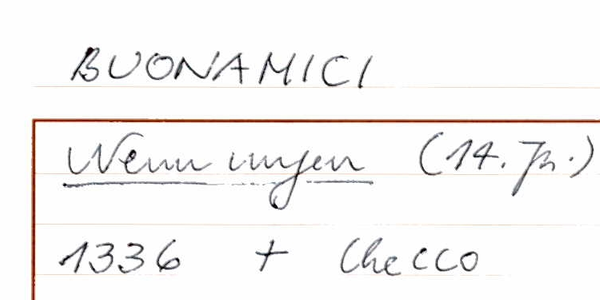 BUONAMICI
Nennungen (14. Jh.)
1336 + Checco